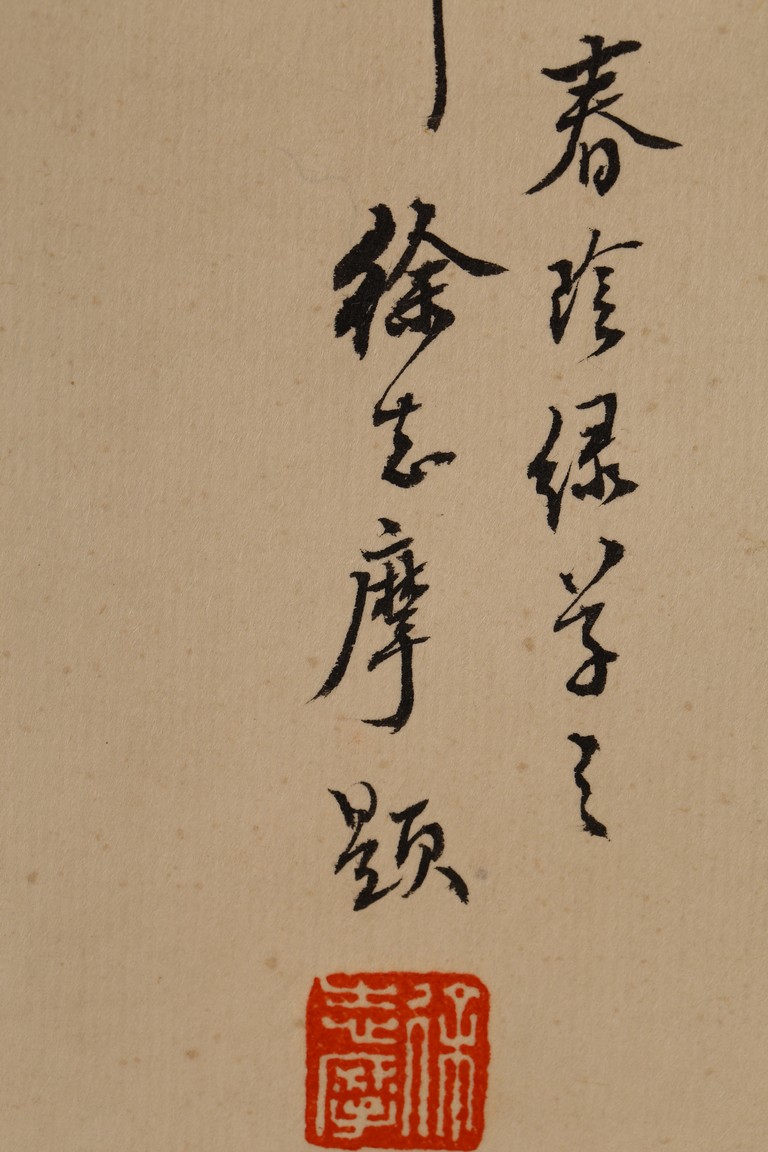 春陰绿草之
徐志摩题
徐志摩